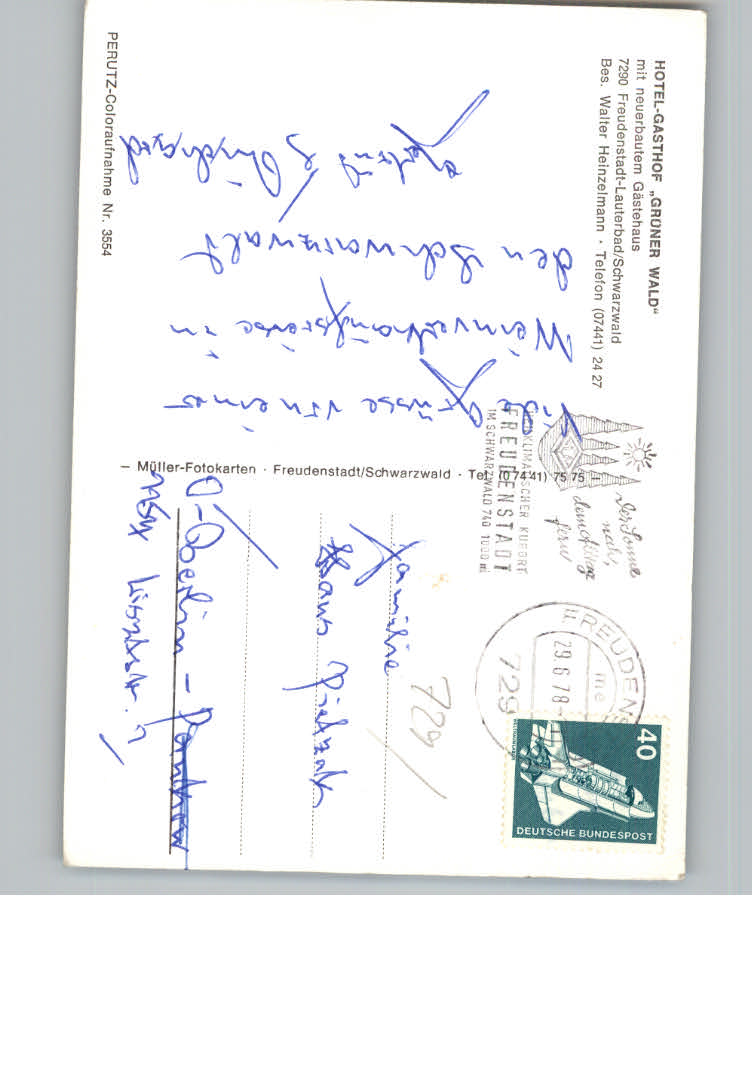 HOTEL-GASTHOF „GRÜNER WALD“
mit neuerbautem Gästehaus
7290 Freudenstadt-Lauterbad/Schwarzwald
Bes. Walter Heinzelmann · Telefon (07441) 24 27
Viele Grüsse von einer
Weinverkaufsreise in
den Schwarzwald
PERUTZ-Coloraufnahme Nr. 3554
— Müller-Fotokarten · Freudenstadt/Schwarzwald · Tel. (0 74 41) 75 75 —
Der Sonne
nah,
dem Alltag
fern
HEILKLIMATISCHER KURORT
FREUDENSTADT
IM SCHWARZWALD 740 1000 m
FREUDENS
29.6.78
729
40
DEUTSCHE BUNDESPOST
729
Familie
Hans
-Berlin - Pankow